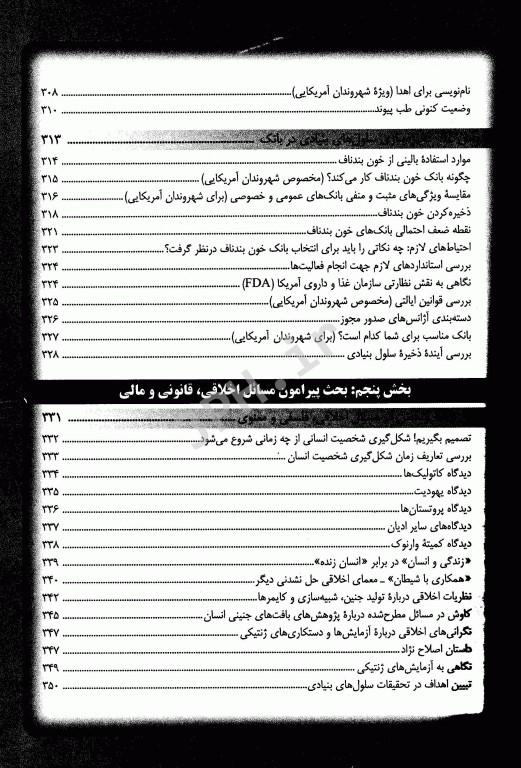 نام‌نویسی برای اهدا (ویژهٔ شهروندان آمریکایی) ۳۰۸
وضعیت کنونی طب پیوند ۳۱۰
سلول‌های بنیادی در بانک ۳۱۳
موارد استفادهٔ بالینی از خون بندناف ۳۱۴
چگونه بانک خون بندناف کار می‌کند؟ (مخصوص شهروندان آمریکایی) ۳۱۵
مقایسهٔ ویژگی‌های مثبت و منفی بانک‌های عمومی و خصوصی (برای شهروندان آمریکایی) ۳۱۶
ذخیره‌کردن خون بندناف ۳۱۸
نقطه ضعف احتمالی بانک‌های خون بندناف ۳۲۱
احتیاط‌های لازم: چه نکاتی را باید برای انتخاب بانک خون بندناف درنظر گرفت؟ ۳۲۳
بررسی استانداردهای لازم جهت انجام فعالیت‌ها ۳۲۴
نگاهی به نقش نظارتی سازمان غذا و داروی آمریکا (FDA) ۳۲۴
بررسی قوانین ایالتی (مخصوص شهروندان آمریکایی) ۳۲۵
دسته‌بندی آژانس‌های صدور مجوز ۳۲۶
بانک مناسب برای شما کدام است؟ (برای شهروندان آمریکایی) ۳۲۷
بررسی آیندهٔ ذخیرهٔ سلول بنیادی ۳۲۸
بخش پنجم: بحث پیرامون مسائل اخلاقی، قانونی و مالی
اخلاق، فلسفی و معنوی ۳۳۱
تصمیم بگیریم! شکل‌گیری شخصیت انسانی از چه زمانی شروع می‌شود ۳۳۲
بررسی تعاریف زمان شکل‌گیری شخصیت انسان ۳۳۳
دیدگاه کاتولیک‌ها ۳۳۴
دیدگاه یهودیت ۳۳۵
دیدگاه پروتستان‌ها ۳۳۶
دیدگاه‌های سایر ادیان ۳۳۷
دیدگاه کمیتهٔ وارنوک ۳۳۸
«زندگی و انسان» در برابر «انسان زنده» ۳۳۹
«همکاری با شیطان» ـ معمای اخلاقی حل نشدنی دیگر ۳۴۰
نظریات اخلاقی دربارهٔ تولید جنین، شبیه‌سازی و کایمرها ۳۴۲
کاوش در مسائل مطرح‌شده دربارهٔ پژوهش‌های بافت‌های جنینی انسان ۳۴۵
نگرانی‌های اخلاقی دربارهٔ آزمایش‌ها و دستکاری‌های ژنتیکی ۳۴۷
داستان اصلاح نژاد ۳۴۷
نگاهی به آزمایش‌های ژنتیکی ۳۴۹
تبیین اهداف در تحقیقات سلول‌های بنیادی ۳۵۰